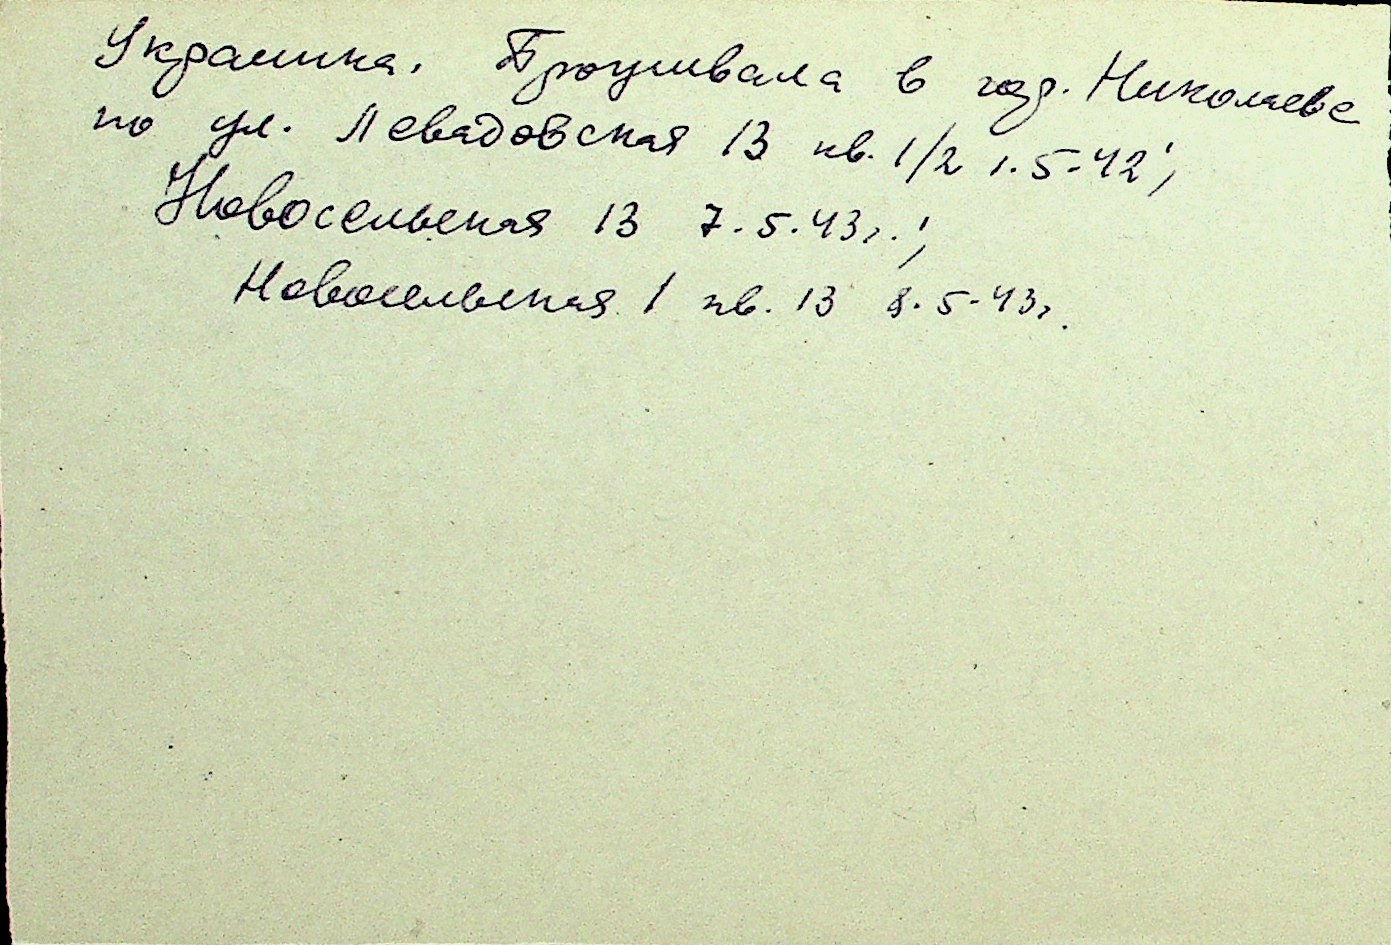 Украинка. Проживала в гор. Николаеве
по ул. Левадовская 13 кв. 1/2 1.5-42;
Новосельская 13 7.5.43г.;
Новосельская 1 кв. 13 8.5-43г.